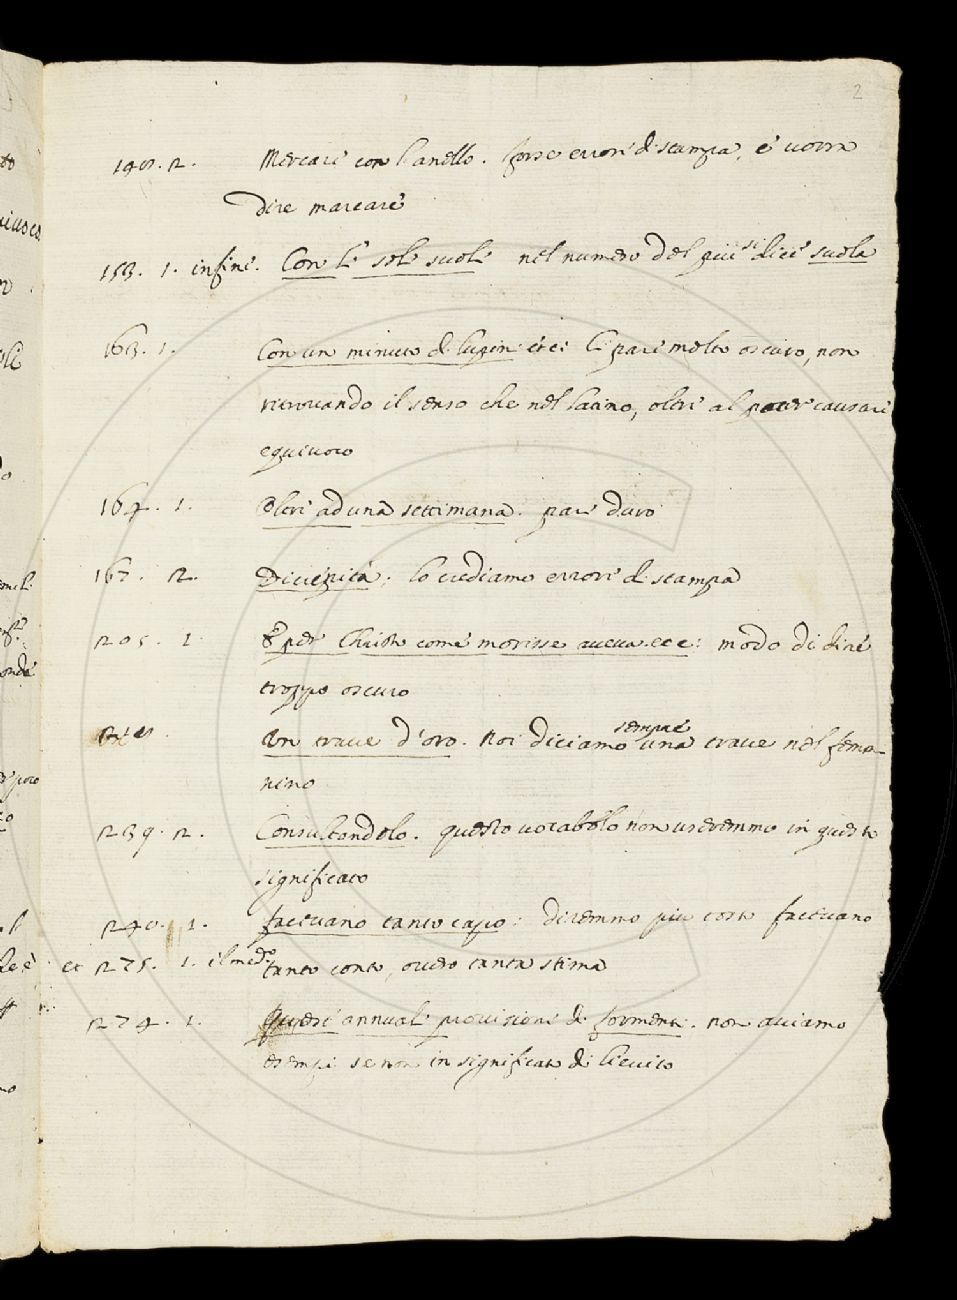 2
149. 2. Mercare con l'anello. forse errore di stampa, e vorra
dire marcare
153. 1. infine. Con le sole suole nel numero del più si dice suola
163. 1. Con un minuto di lupin: etc: Ci pare molto oscuro, non
ritrovando il senso che nel latino, oltre al poter causare
equivoco
164. 1. Oltre ad una settimana. pare duro
167. 2. lo crediamo errore di stampa
205. 1. & per Christo come morisse aveva. etc: modo di dire
troppo oscuro
Un trave d'oro. Noi diciamo sempre una trave nel femi-
nino
239. 2. Consultandolo. questo vocabolo non useremmo in questo
significato
240. 1. facevano tanto capo: diremmo più tosto facevano
et 275. 1. il med.o tanto conto, overo tanta stima
274. 1. Queste annuali provisioni di formenti. non aviamo
esempi se non in significato di lievito